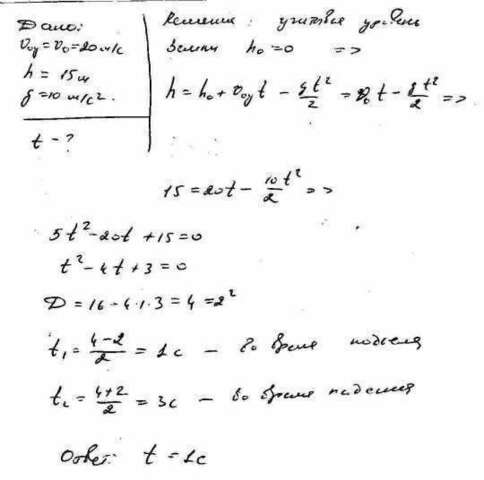 Дано:
v₀y = v₀ = 20 м/с
h = 15 м
g = 10 м/с².
t - ?
Решение: учитывая уровень
Земли h₀ = 0 =>
h = h₀ + v₀y t - gt²/2 = v₀t - gt²/2 =>
15 = 20t - 10t²/2 =>
5t² - 20t + 15 = 0
t² - 4t + 3 = 0
D = 16 - 4·1·3 = 4 = 2²
t₁ = (4-2)/2 = 1с - во время подъема
t₂ = (4+2)/2 = 3с - во время падения
Ответ: t = 1с